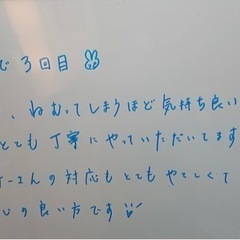 で3回目
、ねむってしまうほど気持ち良い
とても丁寧にやっていただいてます
さんの対応もとてもやさしくて
心の良い方です